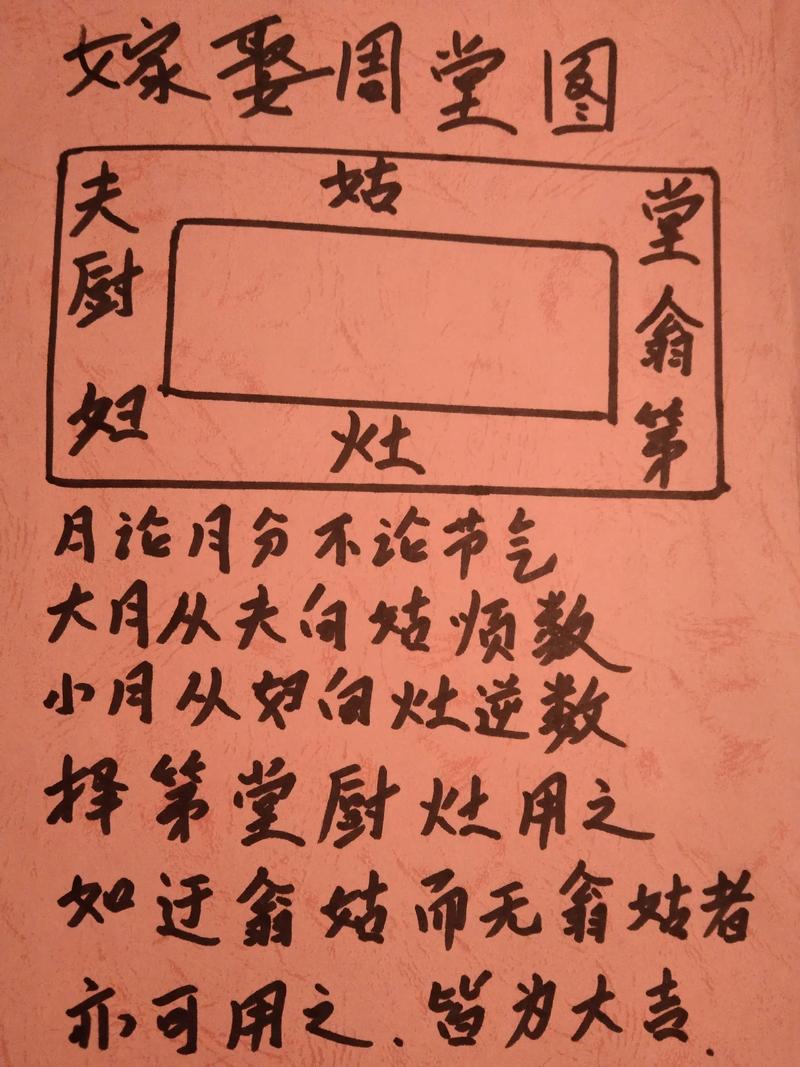 嫁娶周堂图
夫 姑 堂
厨 翁
妇 灶 第
月论月分不论节气
大月从夫向姑顺数
小月从妇向灶逆数
择第堂厨灶用之
如迂翁姑而无翁姑者
亦可用之.皆为大吉.